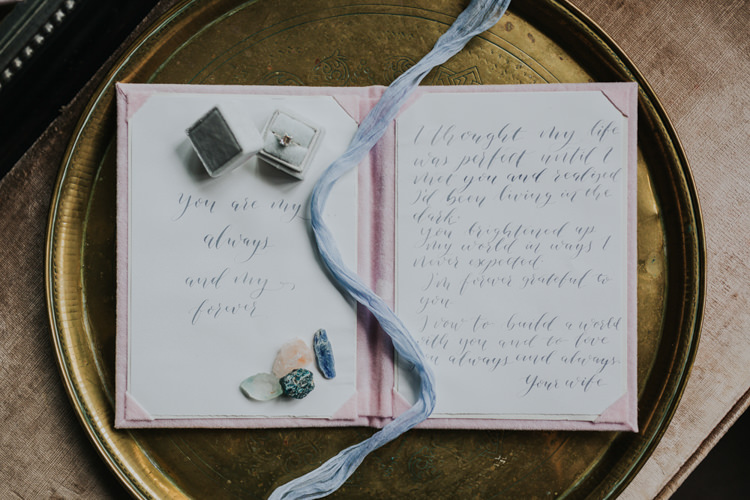 You are my
always
and my
forever
I thought my life
was perfect until I
met you and realized
I'd been living in the
dark.
You brightened up
my world in ways I
never expected.
I'm forever grateful to
you
I vow to build a world
with you and to love
you always and always.
Your wife